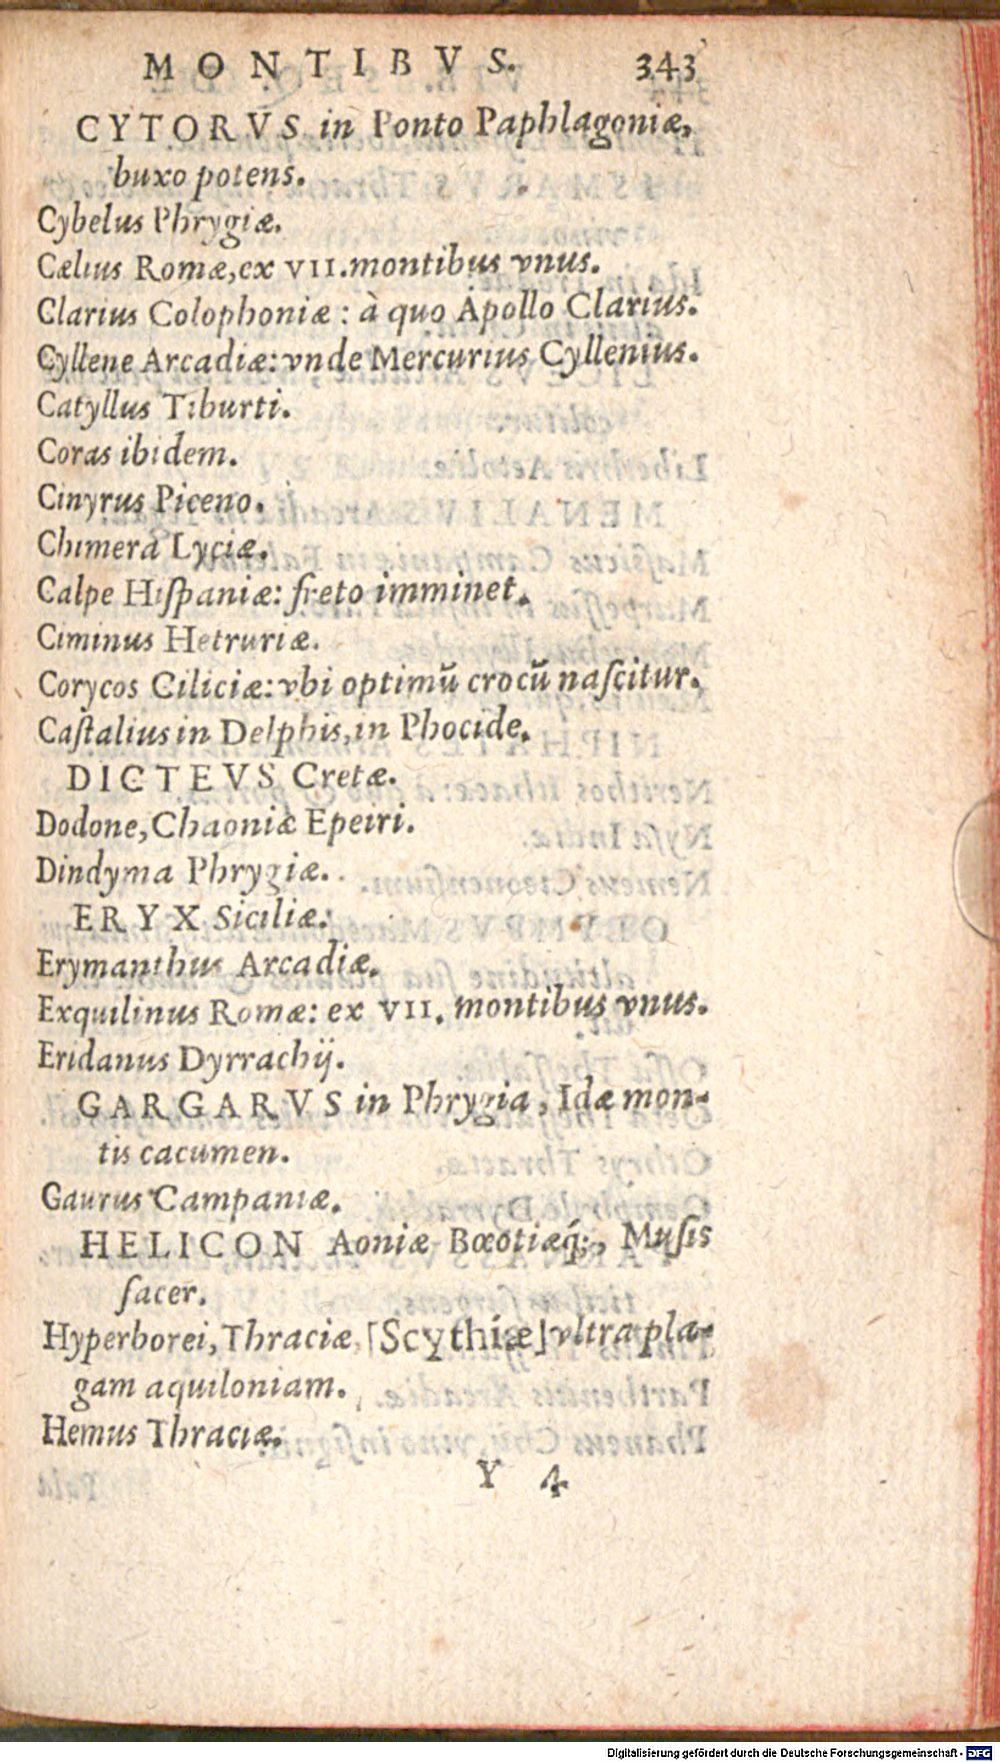 MONTIBVS. 343
CYTORVS in Ponto Paphlagoniæ,
buxo potens.
Cybelus Phrygiæ.
Cælius Romæ, ex VII. montibus vnus.
Clarius Colophoniæ: à quo Apollo Clarius.
Cyllene Arcadiæ: vnde Mercurius Cyllenius.
Catyllus Tiburti.
Coras ibidem.
Cinyrus Piceno.
Chimera Lyciæ.
Calpe Hiſpaniæ: freto imminet.
Ciminus Hetruriæ.
Corycos Ciliciæ: vbi optimū crocū naſcitur.
Caſtalius in Delphis, in Phocide.
DICTEVS Cretæ.
Dodone, Chaoniæ Epeiri.
Dindyma Phrygiæ.
ERYX Siciliæ.
Erymanthus Arcadiæ.
Exquilinus Romæ: ex VII. montibus vnus.
Eridanus Dyrrachij.
GARGARVS in Phrygia, Idæ mon-
tis cacumen.
Gaurus Campaniæ.
HELICON Aoniæ Bœotiæq́;, Muſis
ſacer.
Hyperborei, Thraciæ, [Scythiæ] vltra pla-
gam aquiloniam.
Hemus Thraciæ.
Y 4
Digitalisierung gefördert durch die Deutsche Forschungsgemeinschaft - DFG